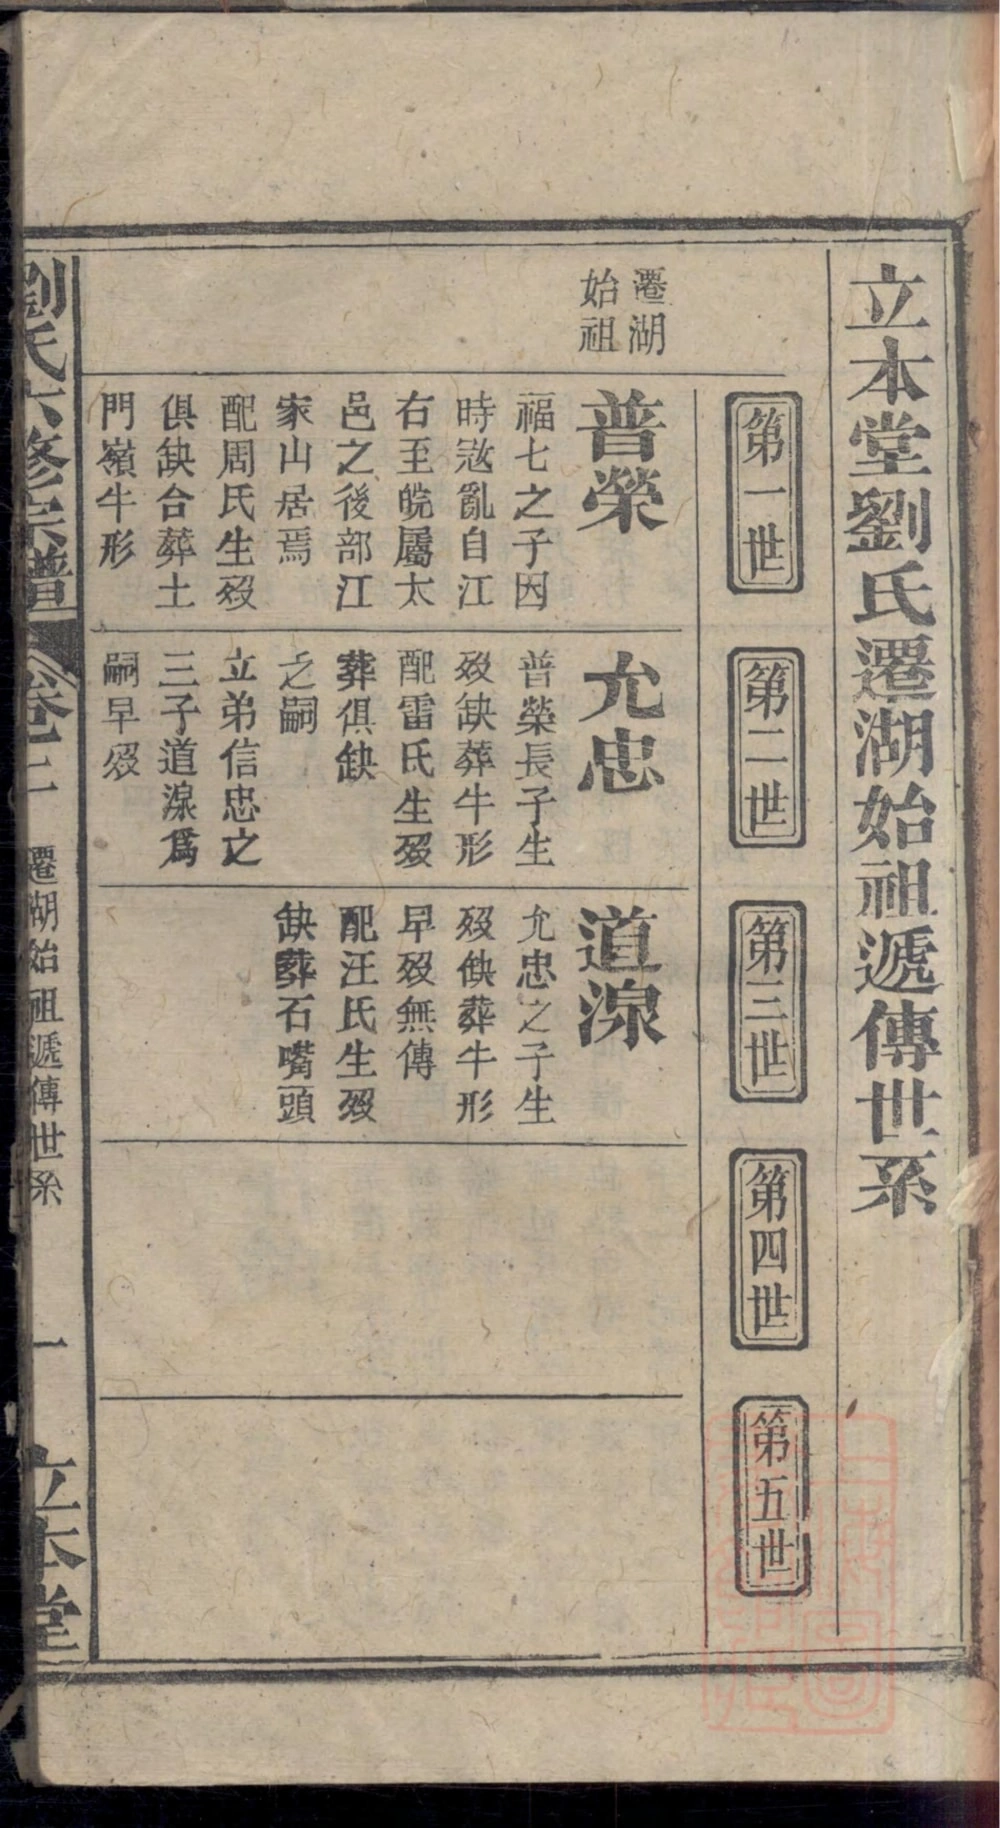 立本堂劉氏遷湖始祖遞傳世系
第一世
第二世
第三世
第四世
第五世
遷湖
始祖
普榮
福七之子因
時寇亂自江
右至皖屬太
邑之後部江
家山居焉
配周氏生歿
俱缺合葬土
門嶺牛形
允忠
普榮長子生
歿缺葬牛形
配雷氏生歿
葬俱缺
立弟信忠之
三子道湶爲
之嗣
嗣早歿
道湶
允忠之子生
歿缺葬牛形
早歿無傳
配汪氏生歿
缺葬石嘴頭
劉氏六修宗譜
卷二
遷湖始祖遞傳世系
一
立本堂